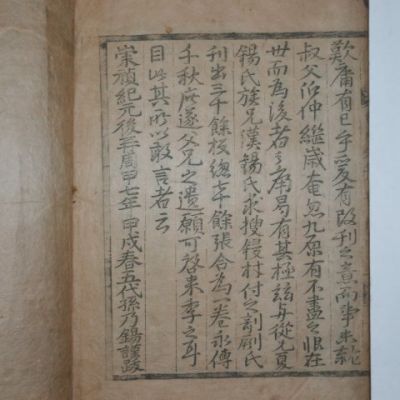 歎庸有已乎爰有改刊之意而事未就
叔父泊仲繼歲奄忽九原有不盡之恨在
世而為後者之痛曷有其極玆与從兄夏
錫氏族兄漢錫氏求搜鋟材付之剞劂氏
刊出三十餘板總餘張合為一卷永傳
千秋庶遂父兄之遺願可啓來季之耳
目此其所以敢言者云
崇禎紀元後三周甲七年甲戌春五代孫乃錫謹跋